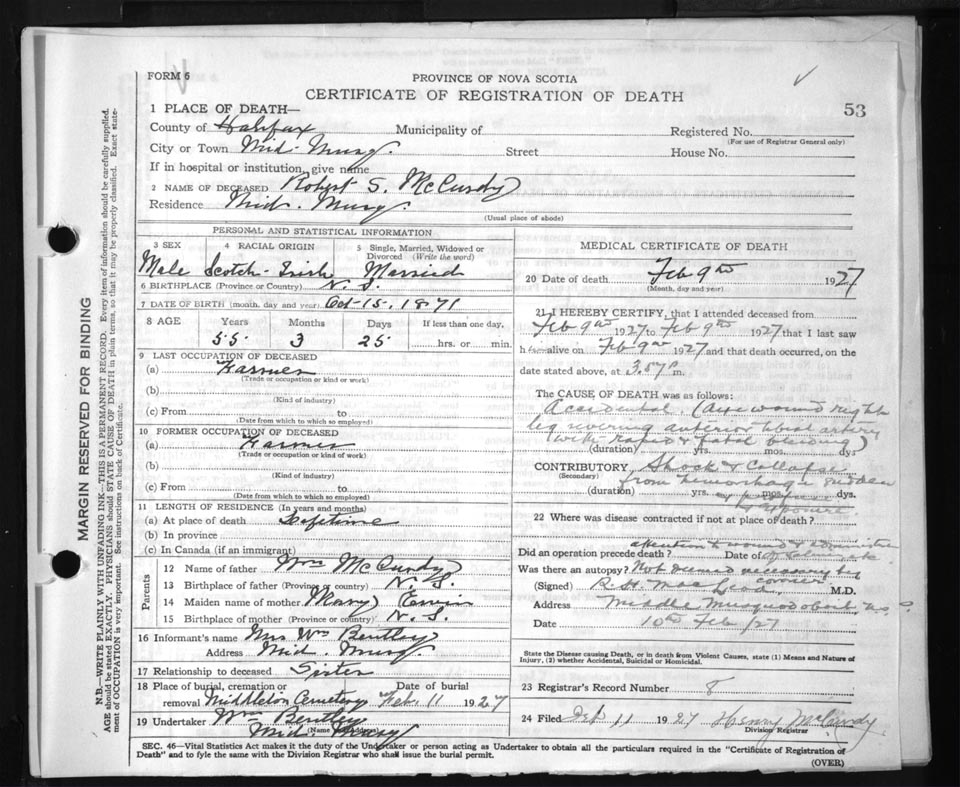 FORM 6
PROVINCE OF NOVA SCOTIA
CERTIFICATE OF REGISTRATION OF DEATH
53
1 PLACE OF DEATH—
County of Halifax Municipality of Registered No.
(For use of Registrar General only)
City or Town Mid. Musq. Street House No.
If in hospital or institution, give name
2 NAME OF DECEASED Robert S. McCurdy
Residence Mid. Musq.
(Usual place of abode)
PERSONAL AND STATISTICAL INFORMATION
3 SEX 4 RACIAL ORIGIN 5 Single, Married, Widowed or Divorced (Write the word)
Male Scotch-Irish Married
6 BIRTHPLACE (Province or Country) N. S.
7 DATE OF BIRTH (month, day and year) Oct-15-1871
8 AGE Years Months Days If less than one day,
55 3 25 hrs. or min.
9 LAST OCCUPATION OF DECEASED
(a) Farmer
(Trade or occupation or kind or work)
(b)
(Kind of industry)
(c) From to
(Date from which to which so employed)
10 FORMER OCCUPATION OF DECEASED
(a) Farmer
(Trade or occupation or kind of work)
(b)
(Kind of industry)
(c) From to
(Date from which to which so employed)
11 LENGTH OF RESIDENCE (In years and months)
(a) At place of death Lifetime
(b) In province
(c) In Canada (if an immigrant)
Parents
12 Name of father Wm McCurdy
13 Birthplace of father (Province or country) N. S.
14 Maiden name of mother Mary Ervin
15 Birthplace of mother (Province or country) N. S.
16 Informant's name Mrs Wm Bentley
Address Mid. Musq.
17 Relationship to deceased Sister
18 Place of burial, cremation or removal Middleton Cemetery Date of burial Feb. 11 1927
19 Undertaker Wm Bentley
(Name and address)
Mid Musq
MEDICAL CERTIFICATE OF DEATH
20 Date of death Feb 9th 1927
(Month, day and year)
21 I HEREBY CERTIFY, that I attended deceased from
Feb 9th 1927 to Feb 9th 1927 that I last saw
h alive on Feb 9th 1927 and that death occurred, on the
date stated above, at 3.57 P m.
The CAUSE OF DEATH was as follows:
Accidental. (Axe wound right
leg severing anterior tibial artery
with rapid & fatal bleeding)
(duration) yrs. mos. dys
CONTRIBUTORY, Shock & Collapse
(Secondary)
from hemorhage sudden
(duration) yrs. mos. dys.
& exposure.
22 Where was disease contracted if not at place of death?
attention to wound &
Did an operation precede death? Date of
Was there an autopsy? Not deemed necessary by
coroner
(Signed) R. H. MacLeod M.D.
Address Middle Musquodoboit N.S.
Date 10th Feb /27
State the Disease causing Death, or in death from Violent Causes, state (1) Means and Nature of
Injury, (2) whether Accidental, Suicidal or Homicidal.
23 Registrar's Record Number 8
24 Filed Feb 11 1927 Henry McCurdy
Division Registrar
SEC. 46—Vital Statistics Act makes it the duty of the Undertaker or person acting as Undertaker to obtain all the particulars required in the "Certificate of Registration of
Death" and to fyle the same with the Division Registrar who shall issue the burial permit.
(OVER)
MARGIN RESERVED FOR BINDING
N.B.—WRITE PLAINLY WITH UNFADING INK—THIS IS A PERMANENT RECORD. Every item of information should be carefully supplied.
AGE should be stated EXACTLY. PHYSICIANS should STATE CAUSE OF DEATH in plain terms, so that it may be properly classified. Exact state-
ment of OCCUPATION is very important. See instructions on back of Certificate.